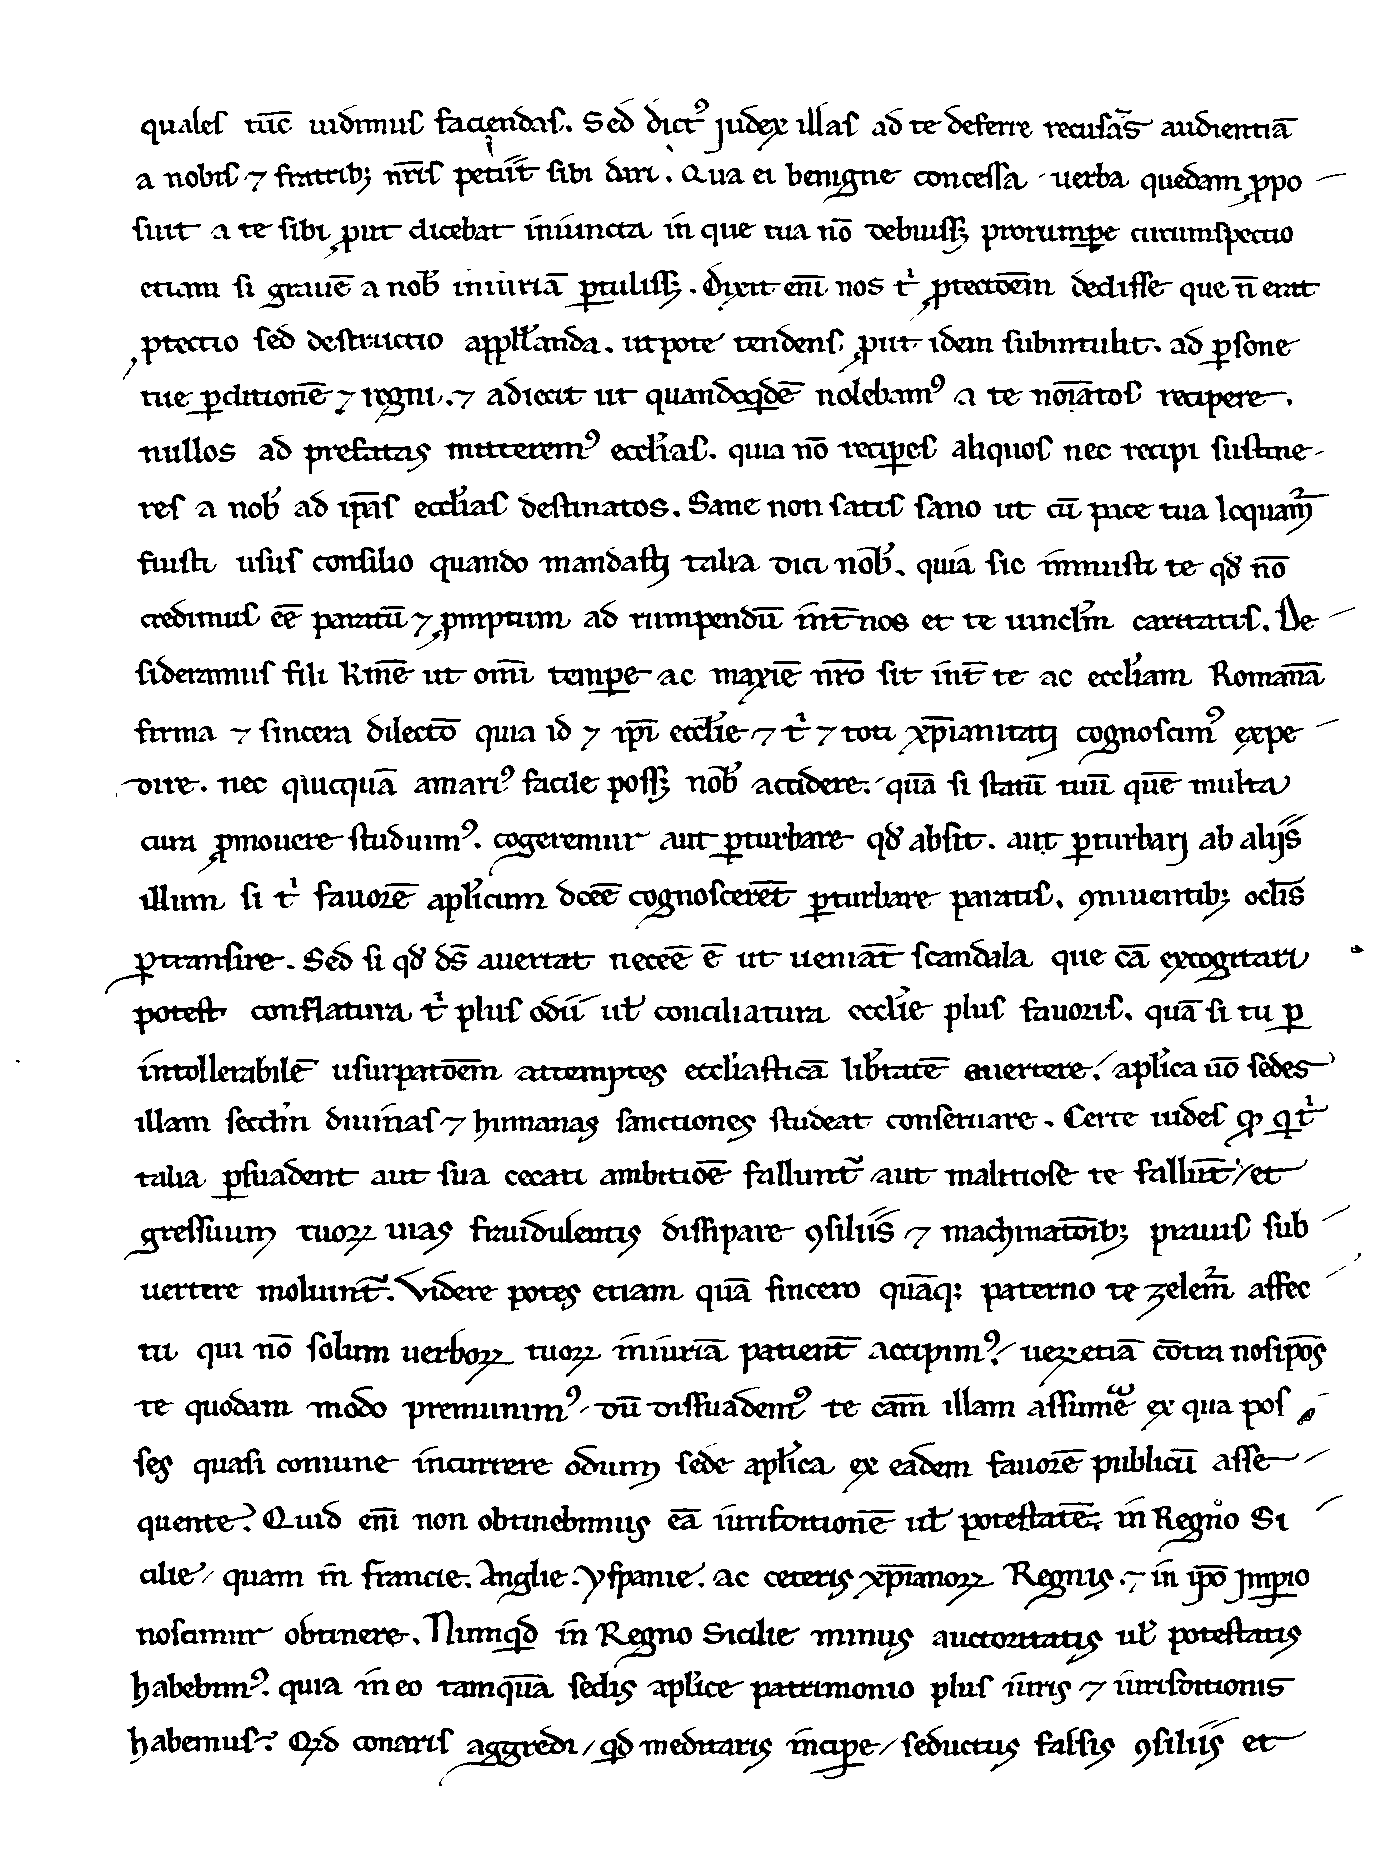 quales tūc uidimus faciendas. Sed dict⁹ judex illas ad te deferre recusās audientiā
a nobis ⁊ fratrib; nr̄is petiit sibi dari. Qua ei benigne concessa uerba quedam ꝓpo
suit a te sibi ꝓut dicebat iniuncta in que tua nō debuiss; prorumꝑe circumspectio
etiam si grauē a nob̄ iniuriā ꝑtuliss;. Dixit eni̅ nos tⁱ ꝓtectoēm dedisse que n̄ erat
ꝓtectio sed destructio appll̄anda. utpote tendens ꝓut idem subintulit. ad ꝑsone
tue ꝑditionē ⁊ regni. ⁊ adiecit ut quandoqdē nolebam⁹ a te noīatos recipere.
nullos ad prefatas mitterem⁹ eccl̄ias. quia nō reciꝑes aliquos nec recipi sustine
res a nob̄ ad ip̄as eccl̄ias destinatos. Sane non satis sano ut cū pace tua loquam̄
fuisti usus consilio quando mandasti talia dici nob̄. quia sic inmiusti te qd̄ nō
credimus eē paratū ⁊ ꝓmptum ad rumpendū int̄ nos et te uincl̄m caritatis. De
sideramus fili Km̄e ut omī temꝑe ac maxīe nr̄o sit int̄ te ac eccl̄iam Romanā
firma ⁊ sincera dilectō quia id ⁊ ip̄i eccl̄ie ⁊ tⁱ ⁊ toti xp̄ianitati cognoscim⁹ expe
dire. nec quicquā amari⁹ facile poss; nob̄ accidere. quā si statū tuū quē multa
cura ꝓmouere studuim⁹. cogeremur aut ꝑturbare qd̄ absit. aut ꝑturbari ab alijs
illum si tⁱ fauorē apl̄icum dc̄ee cognoscerēt ꝑturbare paratis. ꝯniuentib; ocl̄is
ꝑtransire. Sed si qd̄ ds̄ auertat necēe ē ut ueniāt scandala que cā excogitari
potest conflatura tⁱ plus odii ul̄ conciliatura eccl̄ie plus fauoris. quā si tu ꝑ
intollerabilē usurpatoēm attemptes eccl̄iasticā lib̄tatē auertere. apl̄ica uō sedes
illam sec̄dm diuinas ⁊ humanas sanctiones studeat conseruare. Certe uides qd q tⁱ
talia ꝑsuadent aut sua cecati ambitiōe fallunt̄ aut malitiose te fallūt et
gressuum tuoꝝ uias fraudulentis dissipare ꝯsiliis ⁊ machinatoīb; prauis sub
uertere moliunt̄. Videre potes etiam quā sincero quāq; paterno te zelem̄ affec
tu qui nō solum uerboꝝ tuoꝝ iniuriā patient̄ accipim⁹. ueꝝ etiā cōtra nosip̄os
te quodam modo premunim⁹ dū dissuadem⁹ te cām illam assumē ex qua pos
ses quasi comune incurrere odium sede apl̄ica ex eadem fauorē publicū asse
quente. Quid eni̅ non obtinebimus eā iurisdictionē ul̄ potestatē in Regno Si
cilie quam in francie. Anglie. Yspanie. ac ceteris xp̄ianoꝝ Regnis. ⁊ in ip̄o Imꝑio
noscimur obtinere. Numqd in Regno Sicilie minus auctoritatis ul̄ potestatis
habebim⁹. quia in eo tamquā sedis apl̄ice patrimonio plus iuris ⁊ iurisdictionis
habemus. Qd conaris aggredi qd meditaris inciꝑe seductus falsis ꝯsiliis et